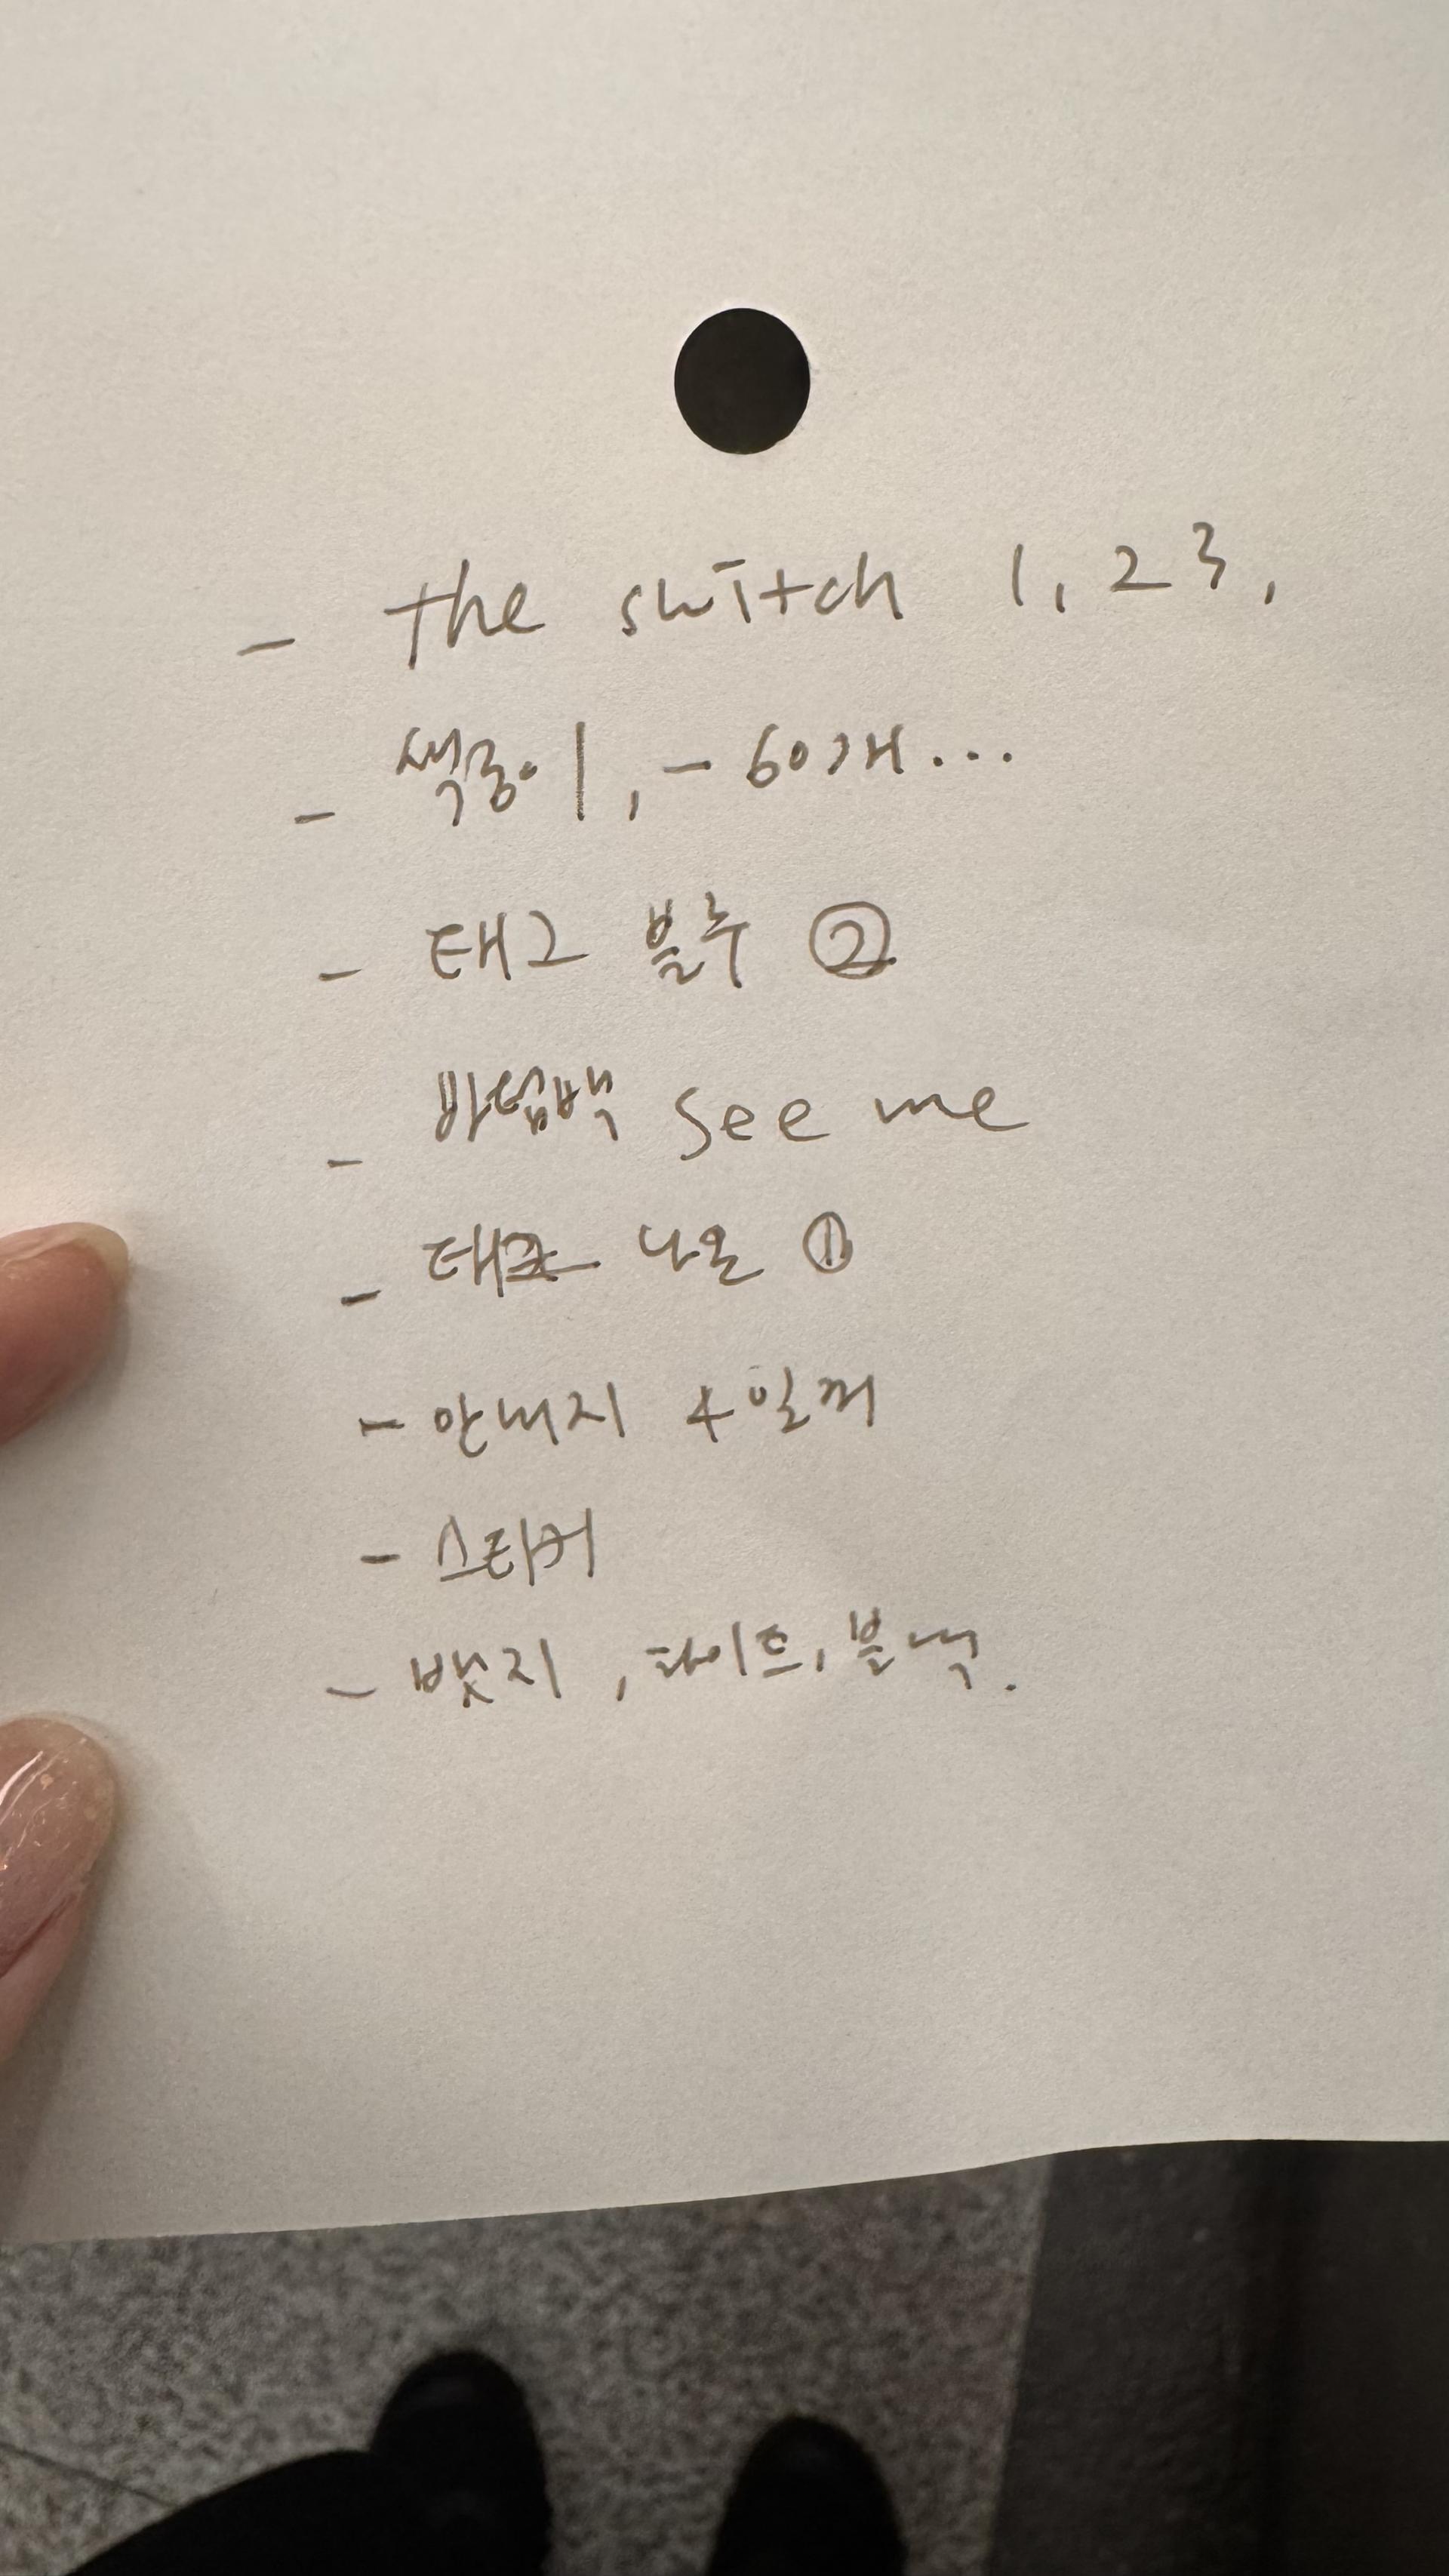 - the switch 1, 2 3,
- 색종이, - 60개...
- 태그 블루 ②
- see me
- 나온 ①
- 안내지 +일꺼
- 스티커
- 뱃지, 테이프, 블랙.